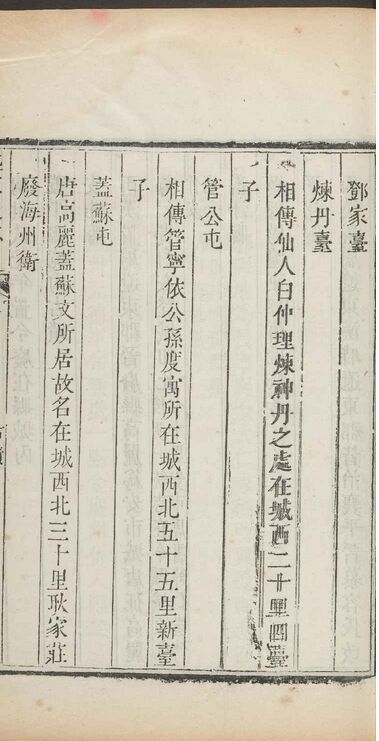 鄧家臺
煉丹臺
相傳仙人白仲理煉神丹之處在城西二十里四臺
子
管公屯
相傳管寧依公孫度寓所在城西北五十五里新臺
子
蓋蘇屯
唐高麗蓋蘇文所居故名在城西北三十里耿家莊
廢海州衛